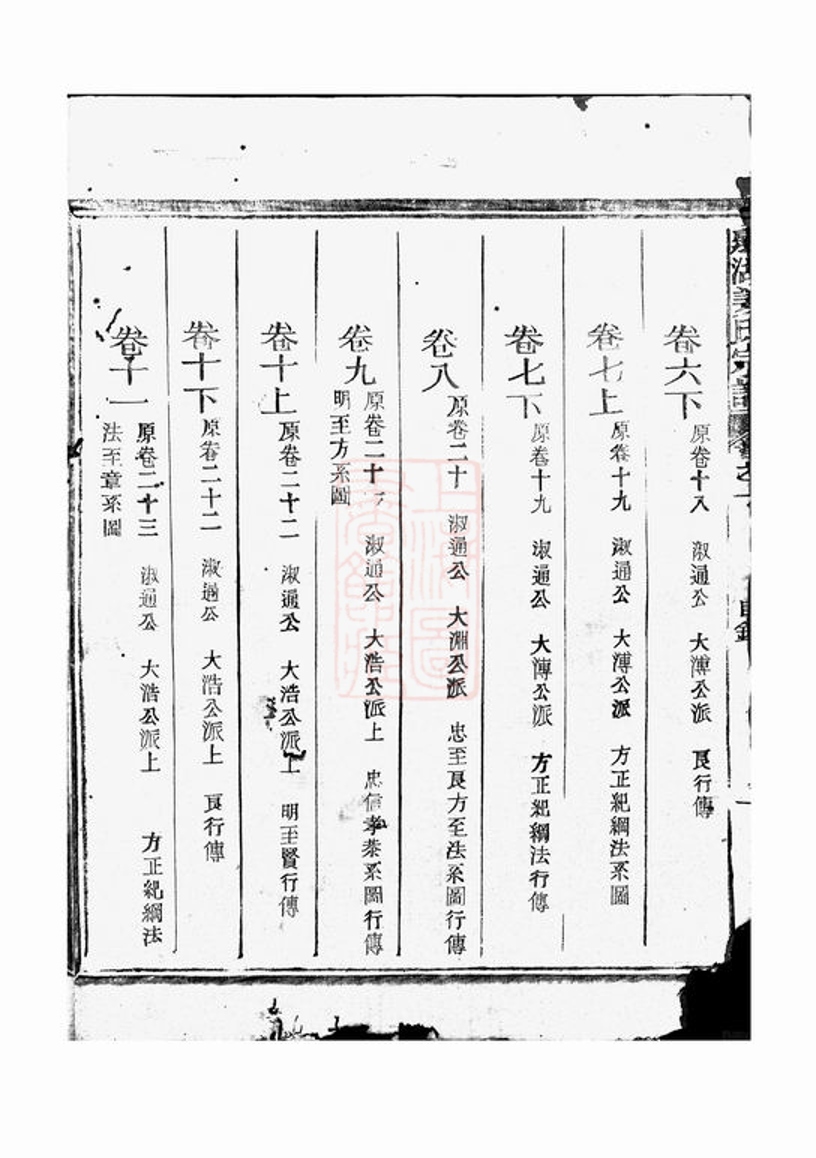 湖姜氏宗譜 卷之 目錄
卷六下 原卷十八 淑通公 大溥公派 良行傳
卷七上 原卷十九 淑通公 大溥公派 方正紀綱法系圖
卷七下 原卷十九 淑通公 大溥公派 方正紀綱法行傳
卷八 原卷二十 淑通公 大淵公派 忠至良方至法系圖行傳
卷九 原卷二十 淑通公 大浩公派上 忠信孝恭系圖行傳
明至方系圖
卷十上 原卷二十二 淑通公 大浩公派上 明至賢行傳
卷十下 原卷二十二 淑通公 大浩公派上 良行傳
卷十一 原卷二十三 淑通公 大浩公派上 方正紀綱法
法至章系圖
上海圖書館藏